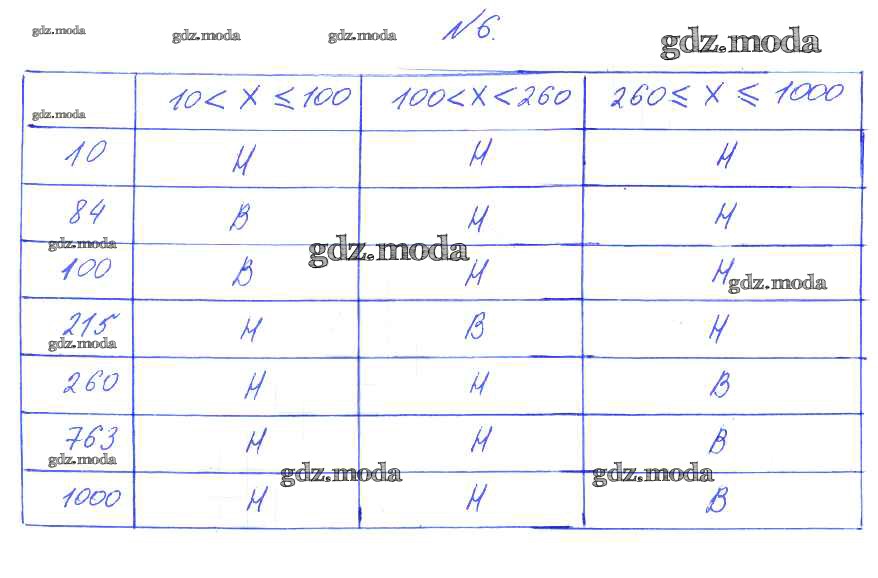 gdz.moda gdz.moda gdz.moda №6. gdz.moda
10 < X ≤ 100 100 < X < 260 260 ≤ X ≤ 1000
gdz.moda
10 Н Н Н
84 В Н Н
gdz.moda gdz.moda
100 В Н Н gdz.moda
215 Н В Н
gdz.moda
260 Н Н В
763 Н Н В
gdz.moda gdz.moda gdz.moda
1000 Н Н В